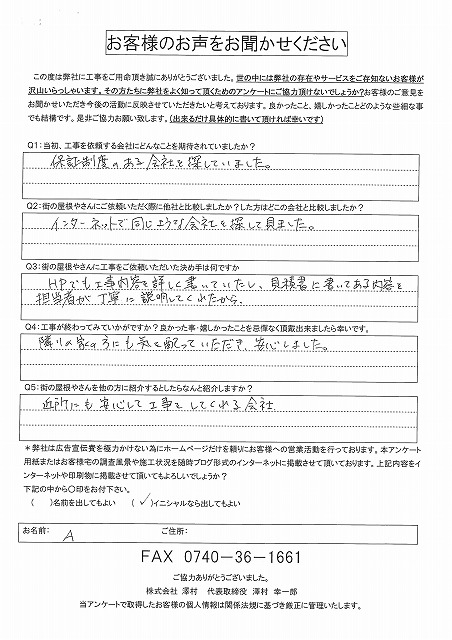 お客様のお声をお聞かせください
この度は弊社に工事をご用命頂き誠にありがとうございました。世の中には弊社の存在やサービスをご存知ないお客様が
沢山いらっしゃいます。その方たちに弊社をよく知って頂くためのアンケートにご協力頂けないでしょうか?お客様のご意見を
お聞かせいただき今後の活動に反映させていただきたいと考えております。良かったこと、嬉しかったことどのような些細な事
でも結構です。是非ご協力お願い致します。(出来るだけ具体的に書いて頂ければ幸いです)
Q1:当初、工事を依頼する会社にどんなことを期待されていましたか?
保証制度のある会社を探していました。
Q2:街の屋根やさんにご依頼いただく際に他社と比較しましたか?した方はどこの会社と比較しましたか?
インターネットで同じような会社を探して見ました。
Q3:街の屋根やさんに工事をご依頼いただいた決め手は何ですか
HPでも工事内容を詳しく書いていたし、見積書に書いてある内容を
担当者が丁寧に説明してくれたから。
Q4:工事が終わってみていかがですか?良かった事・嬉しかったことを忌憚なく頂戴出来ましたら幸いです。
隣りの家の方にも気を配っていただき、安心しました。
Q5:街の屋根やさんを他の方に紹介するとしたらなんと紹介しますか?
近所にも安心して工事をしてくれる会社
*弊社は広告宣伝費を極力かけない為にホームページだけを頼りにお客様への営業活動を行っております。本アンケート
用紙またはお客様宅の調査風景や施工状況を随時ブログ形式のインターネットに掲載させて頂いております。上記内容をイ
ンターネットや印刷物に掲載させて頂いてもよろしいでしょうか?
下記の中から〇印をお付下さい。
( )名前を出してもよい (✓)イニシャルなら出してもよい
お名前: A ご住所:
FAX 0740-36-1661
ご協力ありがとうございました。
株式会社 澤村 代表取締役 澤村 幸一郎
当アンケートで取得したお客様の個人情報は関係法規に基づき厳正に管理いたします。